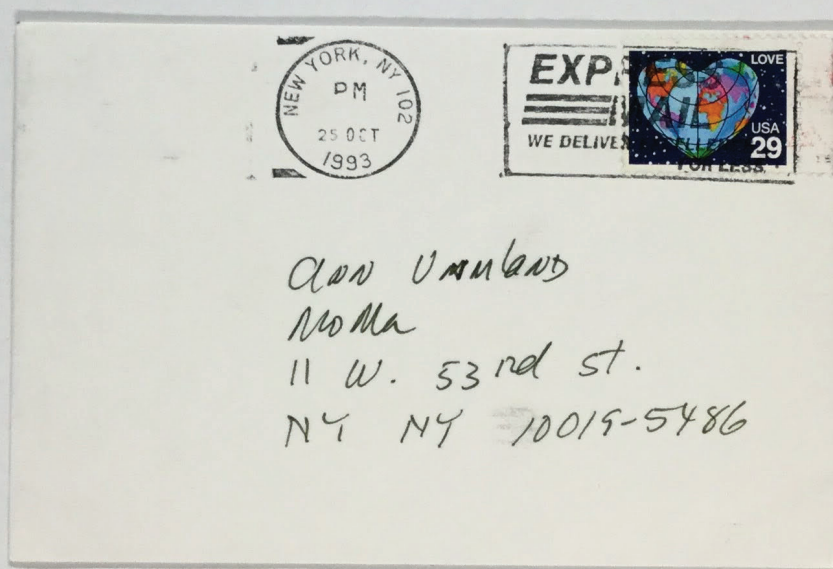 NEW YORK, NY 102
PM
25 OCT
1993
EXPRESS
MAIL
WE DELIVER
FOR LESS.
LOVE
USA
29
Ann Umland
MoMa
11 W. 53rd St.
NY NY 10019-5486